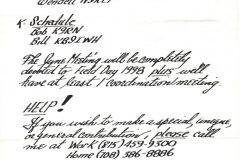 Wendell
K. Schedule
Bob K9KN
Bill KB9IWH
The June Meeting will be completely
devoted to Field Day 1998 plus we'll
have at least 1 coordination meeting.
HELP!
If you wish to make a special, unique,
or general contribution, please call
me at Work (815) 459-9500
Home (708) 586-8886